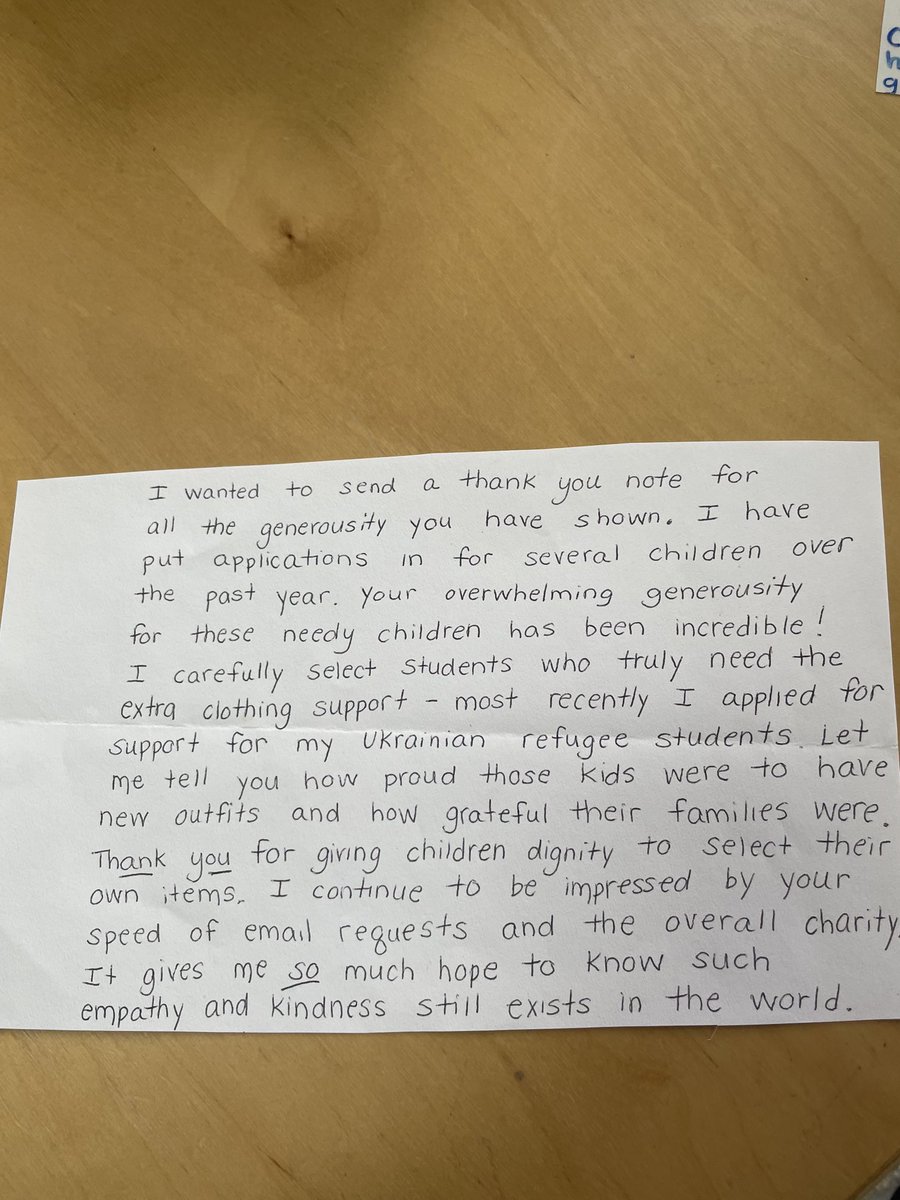 I wanted to send a thank you note for
all the generousity you have shown. I have
put applications in for several children over
the past year. Your overwhelming generousity
for these needy children has been incredible!
I carefully select students who truly need the
extra clothing support - most recently I applied for
support for my Ukrainian refugee students. Let
me tell you how proud those kids were to have
new outfits and how grateful their families were.
Thank you for giving children dignity to select their
own items. I continue to be impressed by your
speed of email requests and the overall charity.
It gives me so much hope to know such
empathy and kindness still exists in the world.